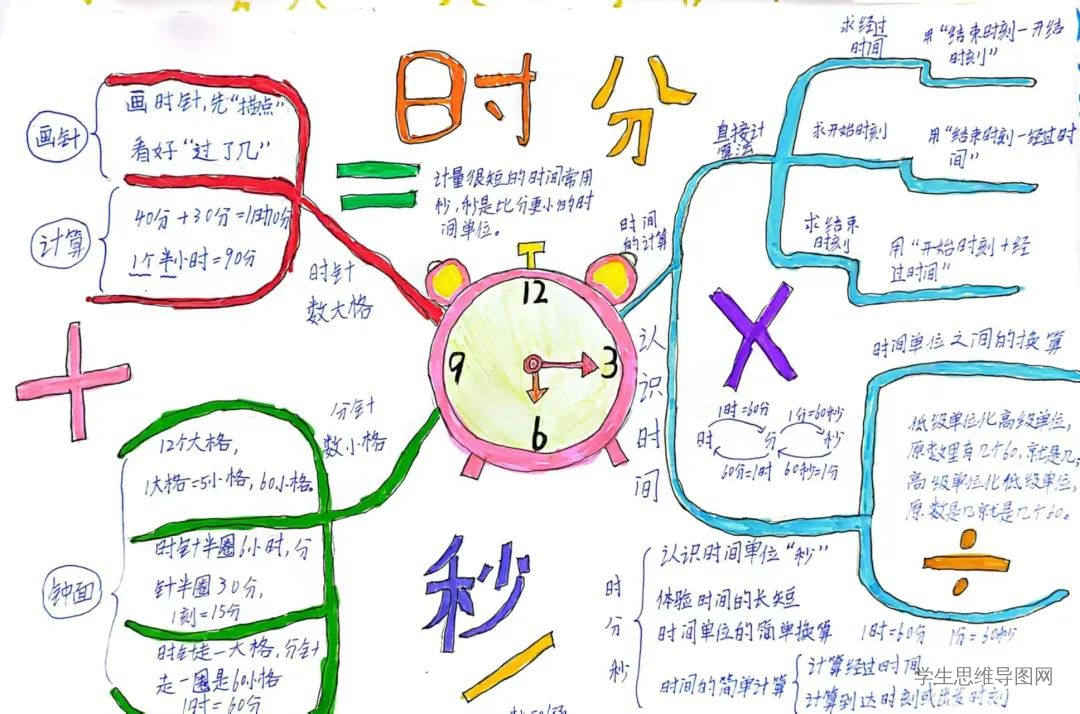 时 分
画针
画时针,先“描点”
看好“过了几”
计算
40分+30分=1时10分
1个半小时=90分
时针
数大格
计量很短的时间常用
秒,秒是比分更小的时
间单位。
时间
的计算
直接计
算法
求经过
时间
用“结束时刻-开始
时刻”
求开始时刻
用“结束时刻-经过时
间”
求结束
时刻
用“开始时刻+经
过时间”
12
9
3
6
认识时间
时间单位之间的换算
1时=60分
1分=60秒
时 分 秒
60分=1时
60秒=1分
低级单位化高级单位,
原数里有几个60,就是几;
高级单位化低级单位,
原数是几就是几个60。
分针
数小格
钟面
12个大格,
1大格=5小格,60小格。
时针半圈6小时,分
针半圈30分,
1刻=15分
时针走一大格,分针
走一圈是60小格
1时=60分
秒
时分秒
认识时间单位“秒”
体验时间的长短
时间单位的简单换算 1时=60分 1分=60秒
时间的简单计算
计算经过时间
计算到达时刻或出发时刻
学生思维导图网